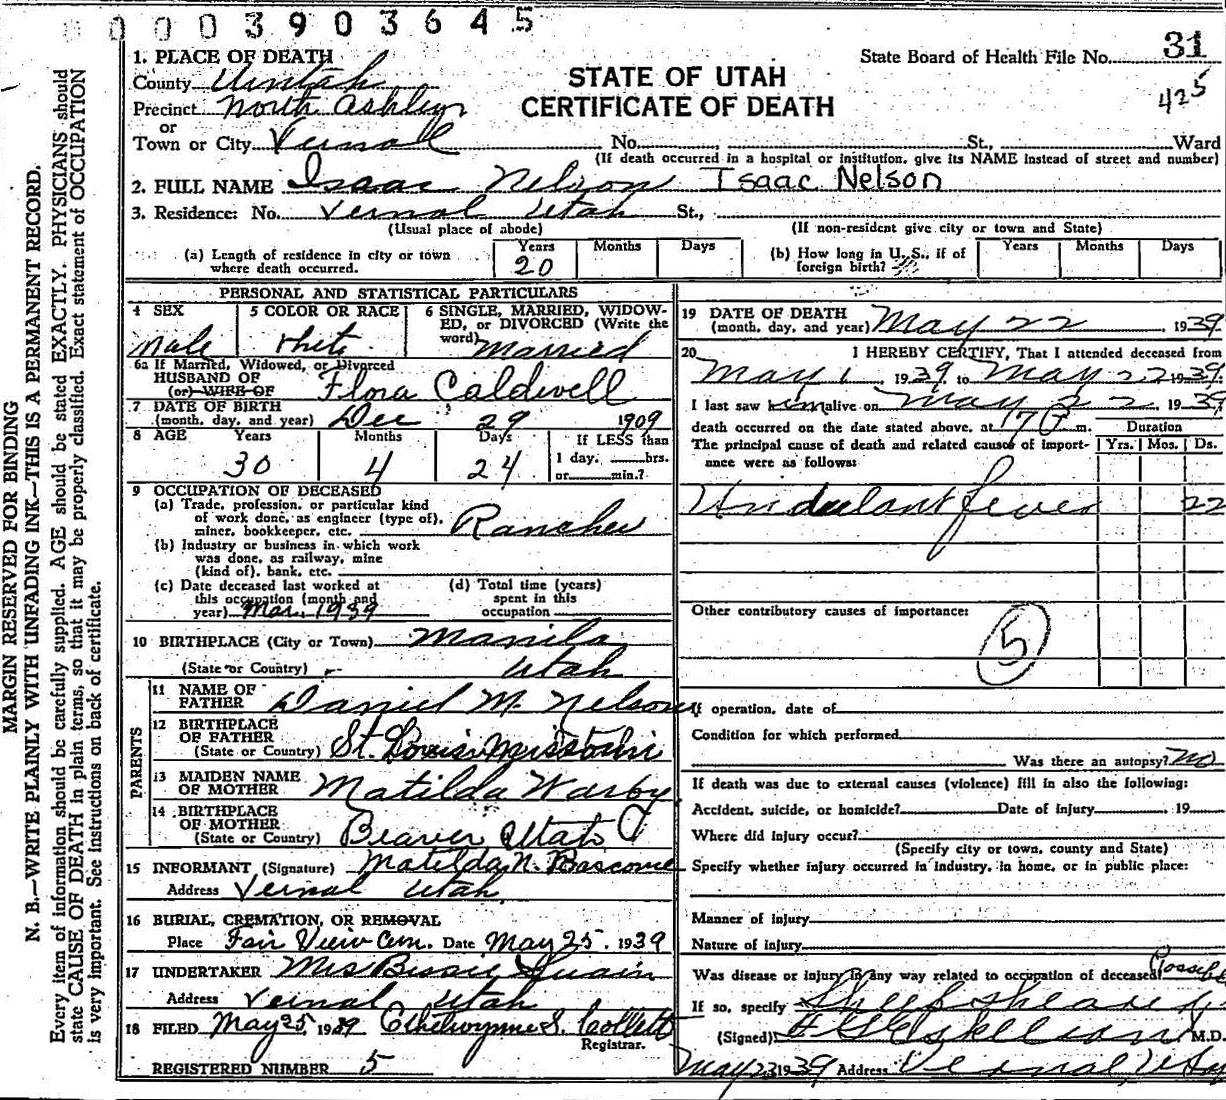 0003903645
MARGIN RESERVED FOR BINDING
N. B.—WRITE PLAINLY WITH UNFADING INK—THIS IS A PERMANENT RECORD.
Every item of information should be carefully supplied. AGE should be stated EXACTLY. PHYSICIANS should
state CAUSE OF DEATH in plain terms, so that it may be properly classified. Exact statement of OCCUPATION
is very important. See instructions on back of certificate.
State Board of Health File No. 31
425
STATE OF UTAH
CERTIFICATE OF DEATH
1. PLACE OF DEATH
County Uintah
Precinct North Ashley
or
Town or City Vernal No. St., Ward
(If death occurred in a hospital or institution, give its NAME instead of street and number)
2. FULL NAME Isaac Nelson Isaac Nelson
3. Residence: No. Vernal Utah St.,
(Usual place of abode) (If non-resident give city or town and State)
(a) Length of residence in city or town where death occurred. Years 20 Months Days
(b) How long in U. S., if of foreign birth? Years Months Days
PERSONAL AND STATISTICAL PARTICULARS
4 SEX Male
5 COLOR OR RACE White
6 SINGLE, MARRIED, WIDOWED, or DIVORCED (Write the word) Married
6a If Married, Widowed, or Divorced
HUSBAND OF
(or) WIFE OF Flora Caldwell
7 DATE OF BIRTH
(month, day, and year) Dec 29 1909
8 AGE Years 30 Months 4 Days 24 If LESS than
1 day, hrs.
or min.?
9 OCCUPATION OF DECEASED
(a) Trade, profession, or particular kind
of work done, as engineer (type of),
miner, bookkeeper, etc. Rancher
(b) Industry or business in which work
was done, as railway, mine
(kind of), bank, etc.
(c) Date deceased last worked at
this occupation (month and
year) Mar. 1939
(d) Total time (years)
spent in this
occupation
10 BIRTHPLACE (City or Town) Manila
(State or Country) Utah
PARENTS
11 NAME OF
FATHER Daniel M. Nelson
12 BIRTHPLACE
OF FATHER
(State or Country) St. Louis Missouri
13 MAIDEN NAME
OF MOTHER Matilda Warby
14 BIRTHPLACE
OF MOTHER
(State or Country) Beaver Utah
15 INFORMANT (Signature) Matilda N. Bascome
Address Vernal Utah
16 BURIAL, CREMATION, OR REMOVAL
Place Fair View Cem. Date May 25, 1939
17 UNDERTAKER Mrs Bessie Swain
Address Vernal Utah
18 FILED May 25 1939 Ethelwynne S. Collett
Registrar.
REGISTERED NUMBER 5
19 DATE OF DEATH
(month, day, and year) May 22, 1939
20 I HEREBY CERTIFY, That I attended deceased from
May 1, 1939, to May 22 1939
I last saw him alive on May 22, 1939
death occurred on the date stated above, at m. Duration
The principal cause of death and related causes of importance were as follows: Yrs. Mos. Ds.
Undulant fever 22
Other contributory causes of importance:
5
If operation, date of
Condition for which performed
Was there an autopsy? No
If death was due to external causes (violence) fill in also the following:
Accident, suicide, or homicide? Date of injury , 19
Where did injury occur?
(Specify city or town, county and State)
Specify whether injury occurred in industry, in home, or in public place:
Manner of injury
Nature of injury
Was disease or injury in any way related to occupation of deceased? Possibly
If so, specify
(Signed) M.D.
May 23 1939 Address Vernal, Utah